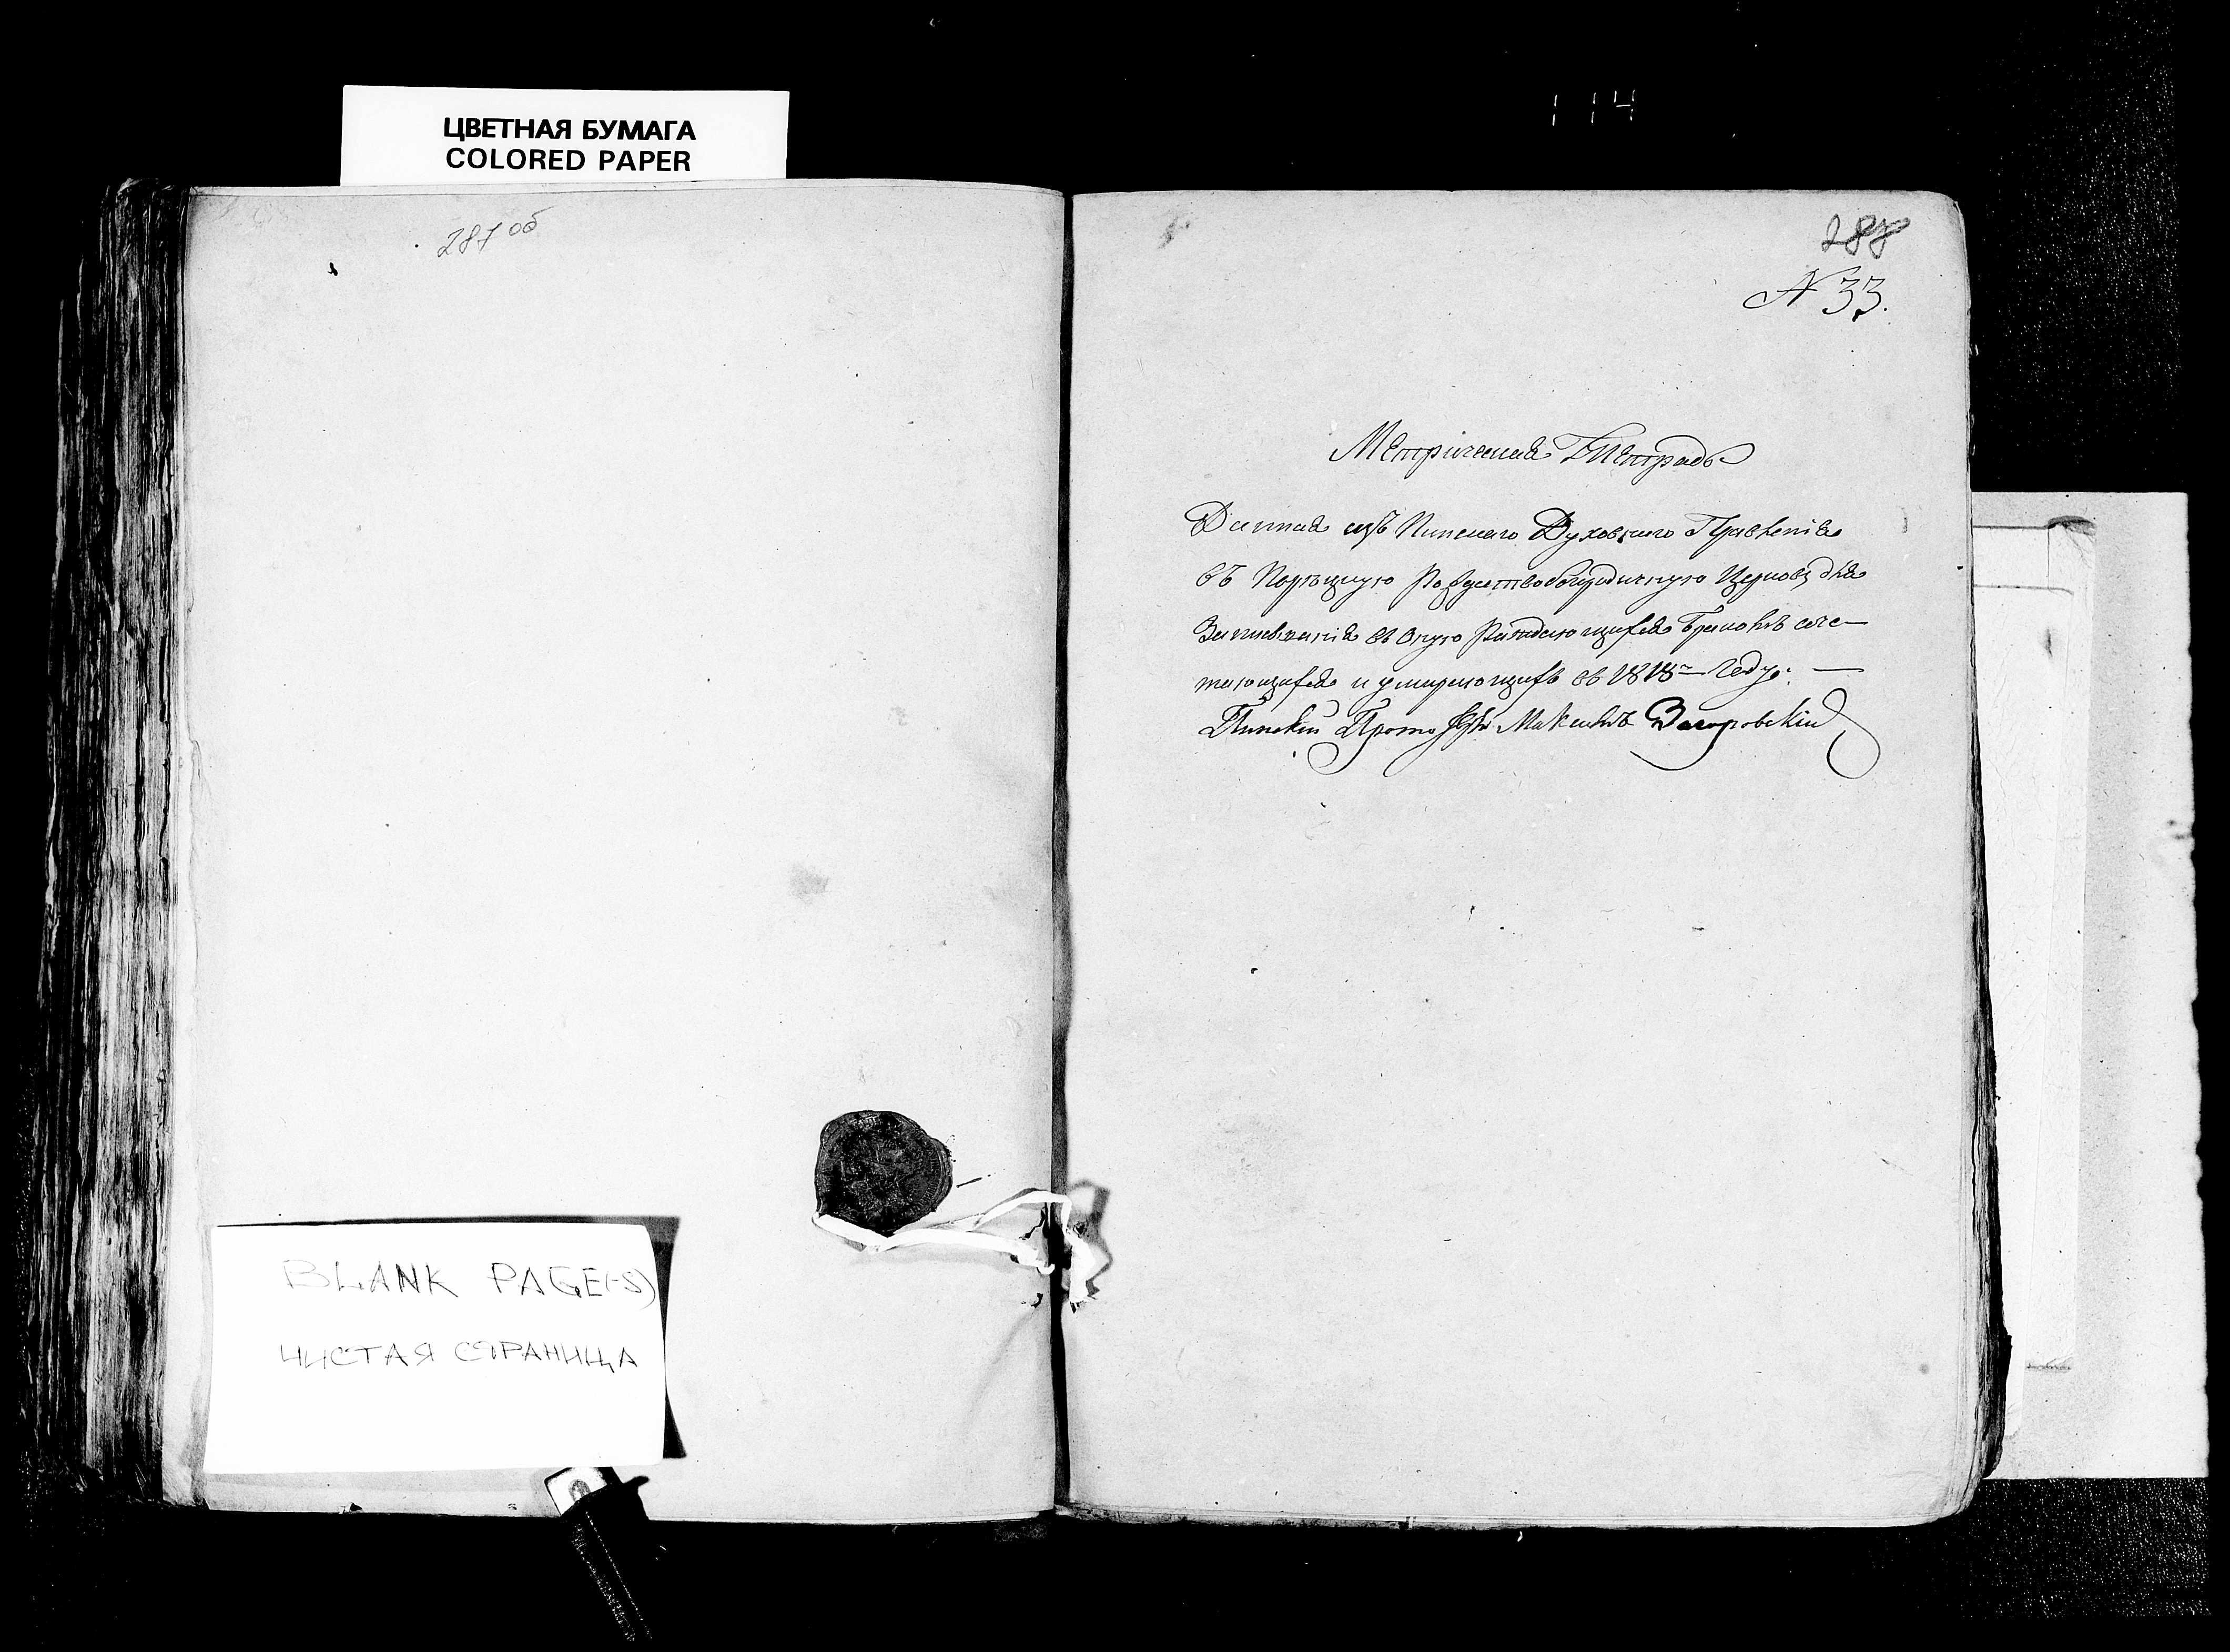 ЦВЕТНАЯ БУМАГА
COLORED PAPER
114
287 об
288
N 33.
Метрическая Тетрадь
Данная изъ Пинскаго Духовнаго Правленія
въ Порѣцкую Рождествобогородичную Церковь для
Записыванія въ оную Раждающихся Бракомъ соче-
тающихся и умирающихъ въ 1818 Году. —
Пинскій Прото Максимъ Загоровскій
BLANK PAGE(-S)
ЧИСТАЯ СТРАНИЦА